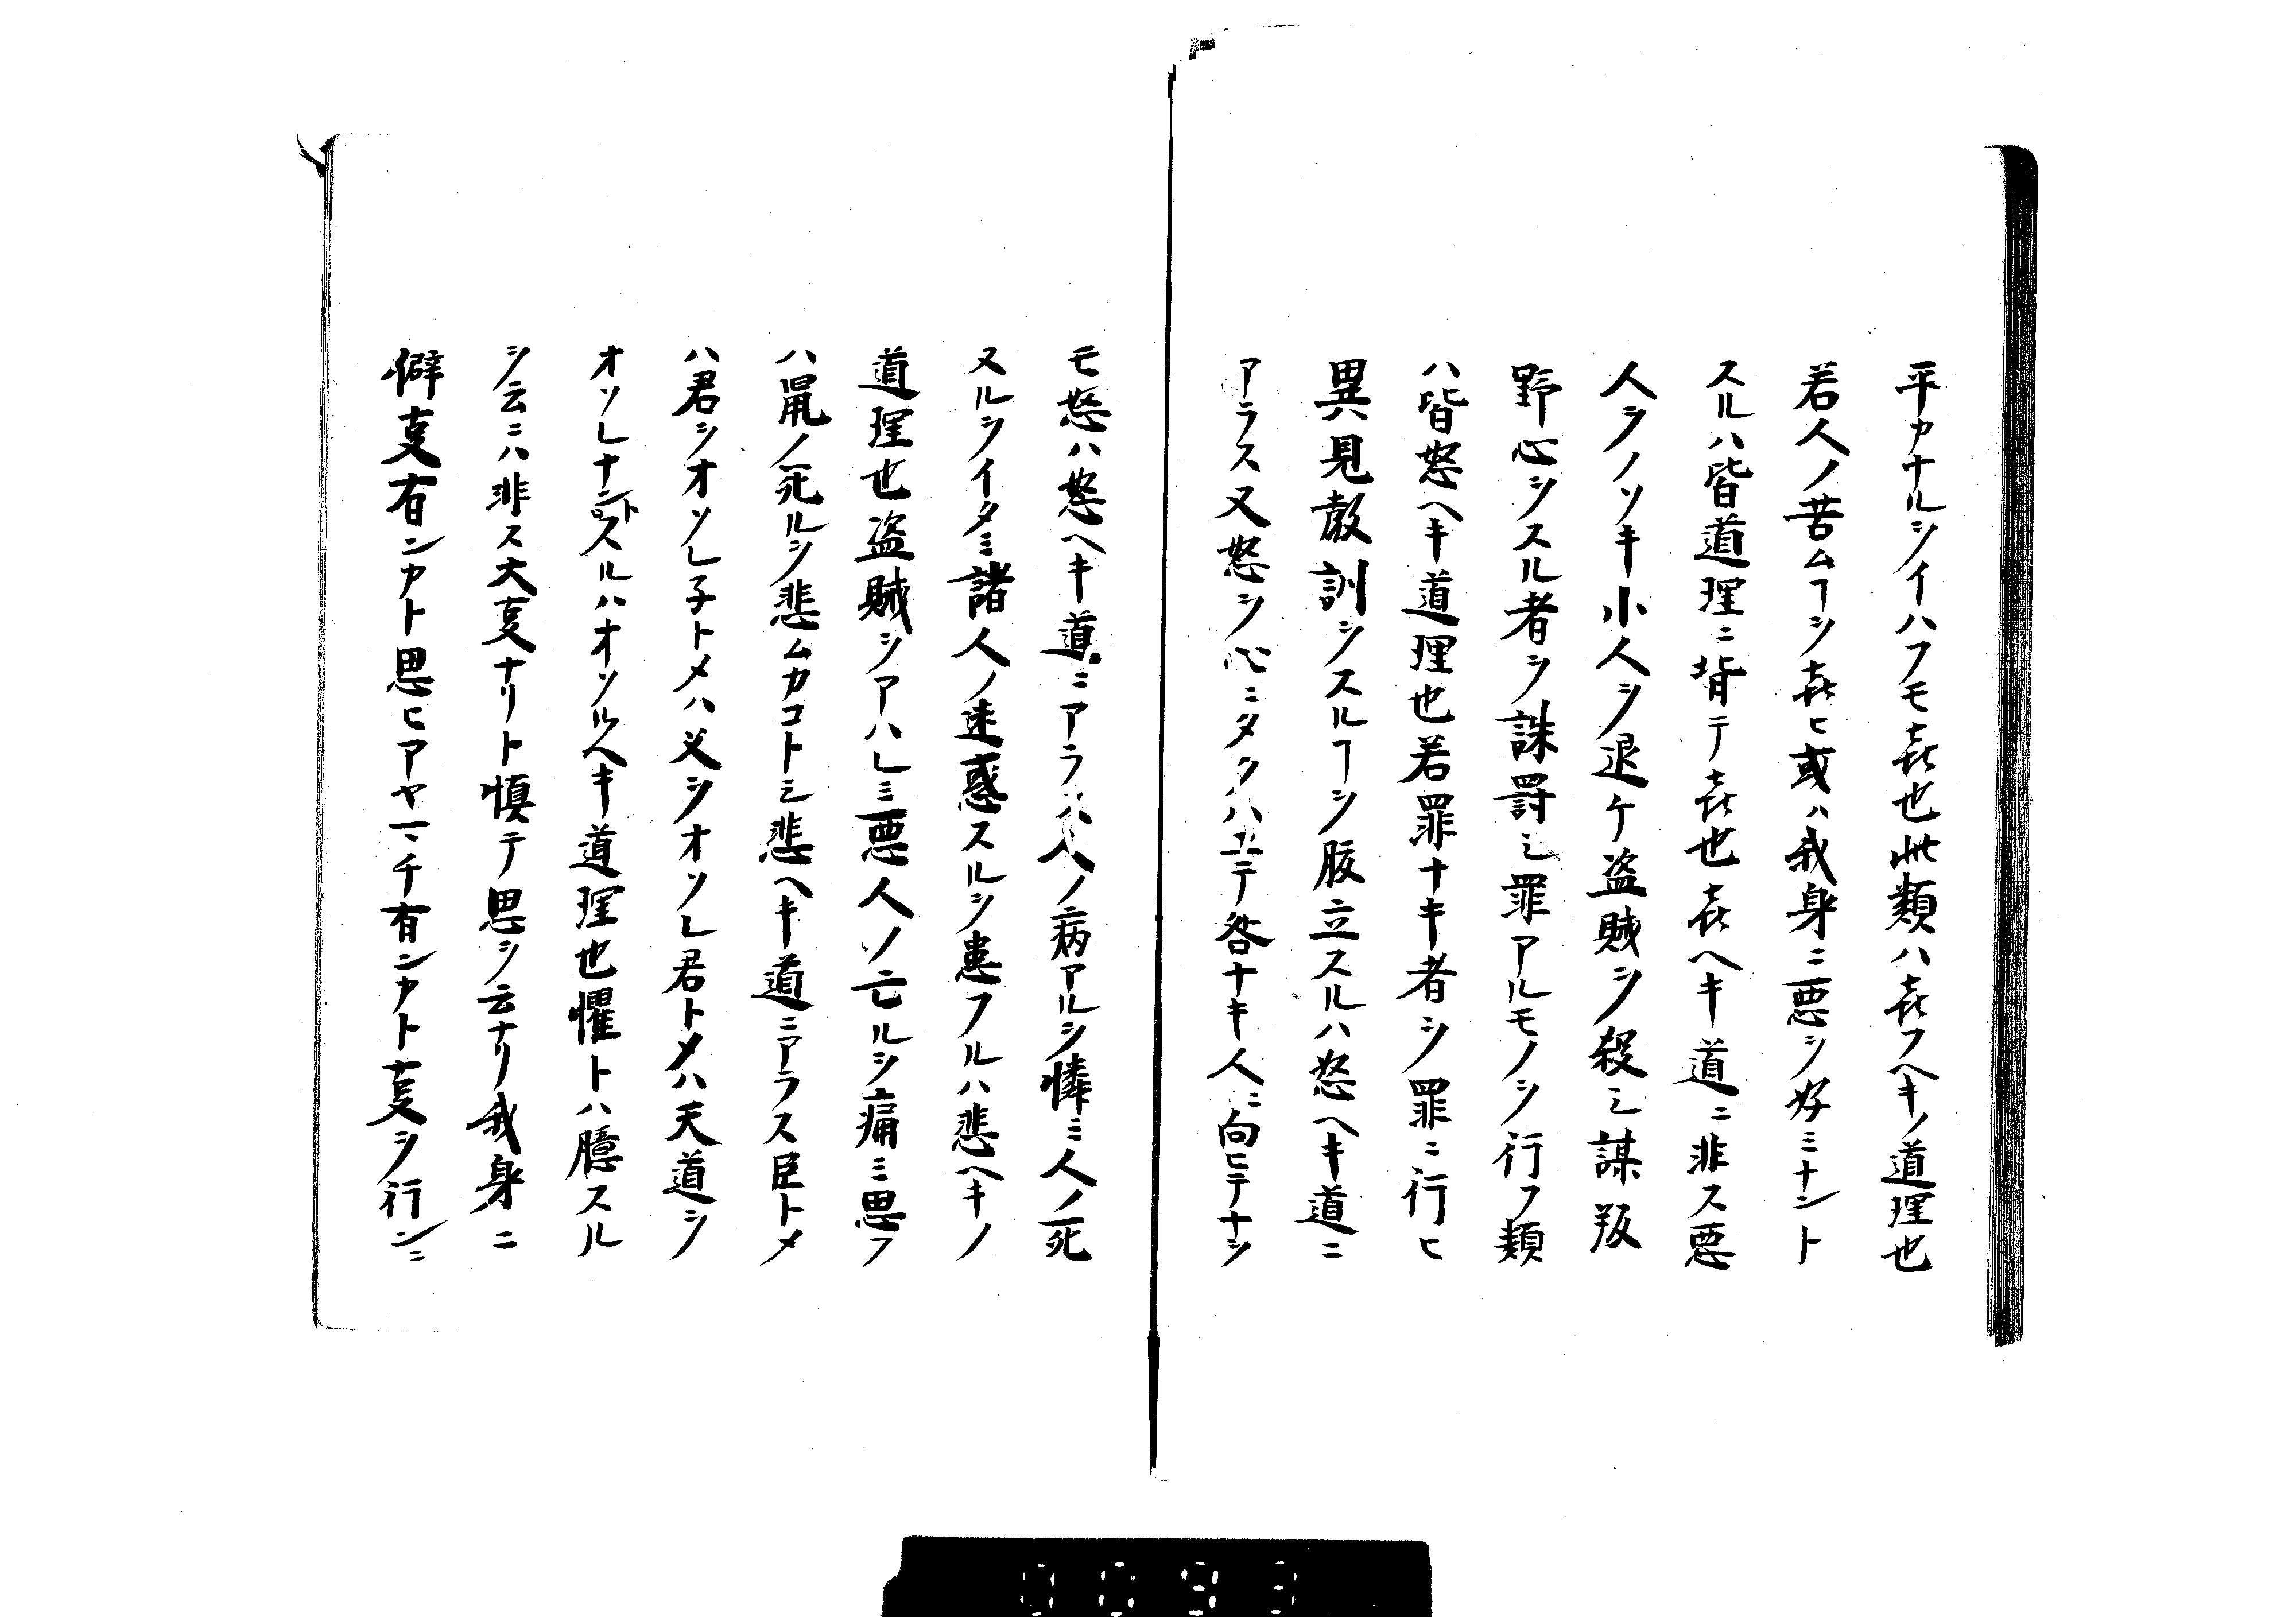 平カナルヲイハフモ㐂也此類ハ㐂フヘキノ道理也
若人ノ苦ムヿヲ㐂ヒ或ハ我身ニ悪ヲ好ミナント
スルハ皆道理ニ背テ㐂也㐂ヘキ道ニ非ス悪
人ヲノソキ小人ヲ退ケ盗賊ヲ殺シ謀叛
野心ヲスル者ヲ誅罸シ罪アルモノヲ行フ類
ハ皆怒ヘキ道理也若罪ナキ者ヲ罪ニ行ヒ
異見教訓ヲスルヿヲ腹立スルハ怒ヘキ道ニ
アラス又怒ヲ心ニタクハエテ咎ナキ人ニ向ヒテナシ
モ怒ハ怒ヘキ道ニアラス人ノ病アルヲ憐ミ人ノ死
スルヲイタミ諸人ノ迷惑スルヲ患フルハ悲ヘキノ
道理也盗賊ヲアハレミ悪人ノ亡ルヲ痛ミ思フ
ハ鼠ノ死ルヲ悲ムカコトシ悲ヘキ道ニアラス臣トメ
ハ君ヲオソレ子トメハ父ヲオソレ君トメハ天道ヲ
オソレナントスルハオソルヘキ道理也懼トハ臆スル
ヲ云ニハ非ス大叓ナリト慎テ思ヲ云ナリ我身ニ
僻叓有ンカト思ヒアヤマチ有ンカト叓ヲ行ンニ
0093